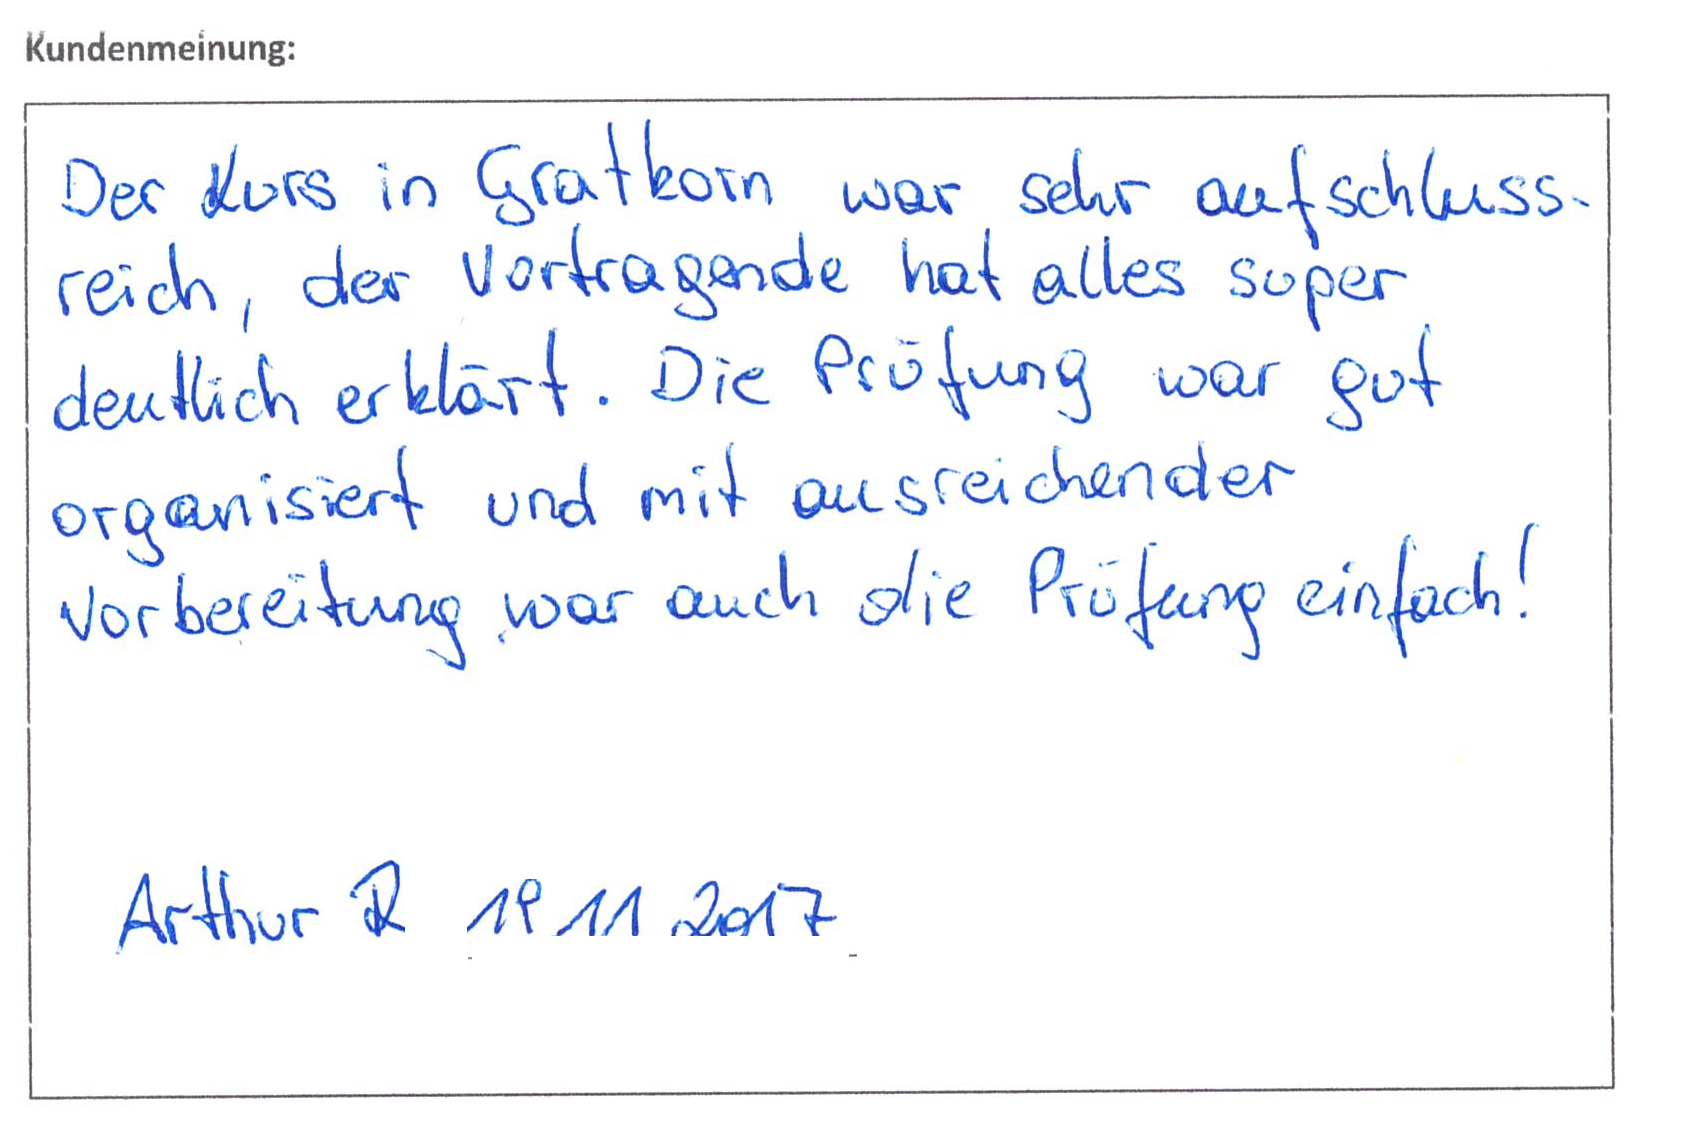 Kundenmeinung:
Der Kurs in Gratkorn war sehr aufschluss-
reich, der Vortragende hat alles super
deutlich erklärt. Die Prüfung war gut
organisiert und mit ausreichender
Vorbereitung war auch die Prüfung einfach!
Arthur R 19 11 2017